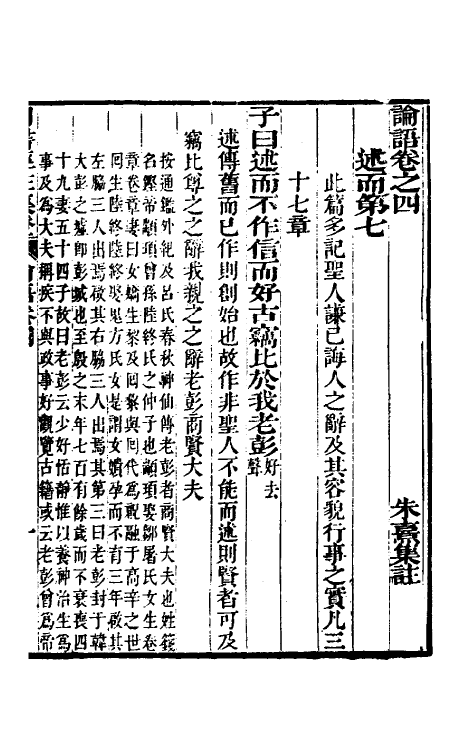 論語卷之四
朱熹集註
述而第七
此篇多記聖人謙己誨人之辭及其容貌行事之實凡三
十七章
子曰述而不作信而好古竊比於我老彭好去聲
述傳舊而已作則創始也故作非聖人不能而述則賢者可及
竊比尊之之辭我親之之辭老彭商賢大夫
按通鑑外紀及呂氏春秋神仙傳老彭者商賢大夫也姓籛
名鏗帝顓頊曾孫陸終氏之仲子也顓頊娶鄒屠氏女生卷
章卷章妻曰女嬌生黎及囘黎與囘代為祝融于高辛之世
囘生陸終陸終娶鬼方氏女是謂女嬇孕而不育三年啟其
左脇三人出焉啟其右脇三人出焉其第三曰老彭封于韓
大彭之墟卽彭城也至殷之末年七百有餘歲而不衰喪四
十九妻五十四子故曰老彭云少好恬靜惟以養神治生為
事及為大夫稱疾不與政事好觀覽古籍或云老彭曾為帝